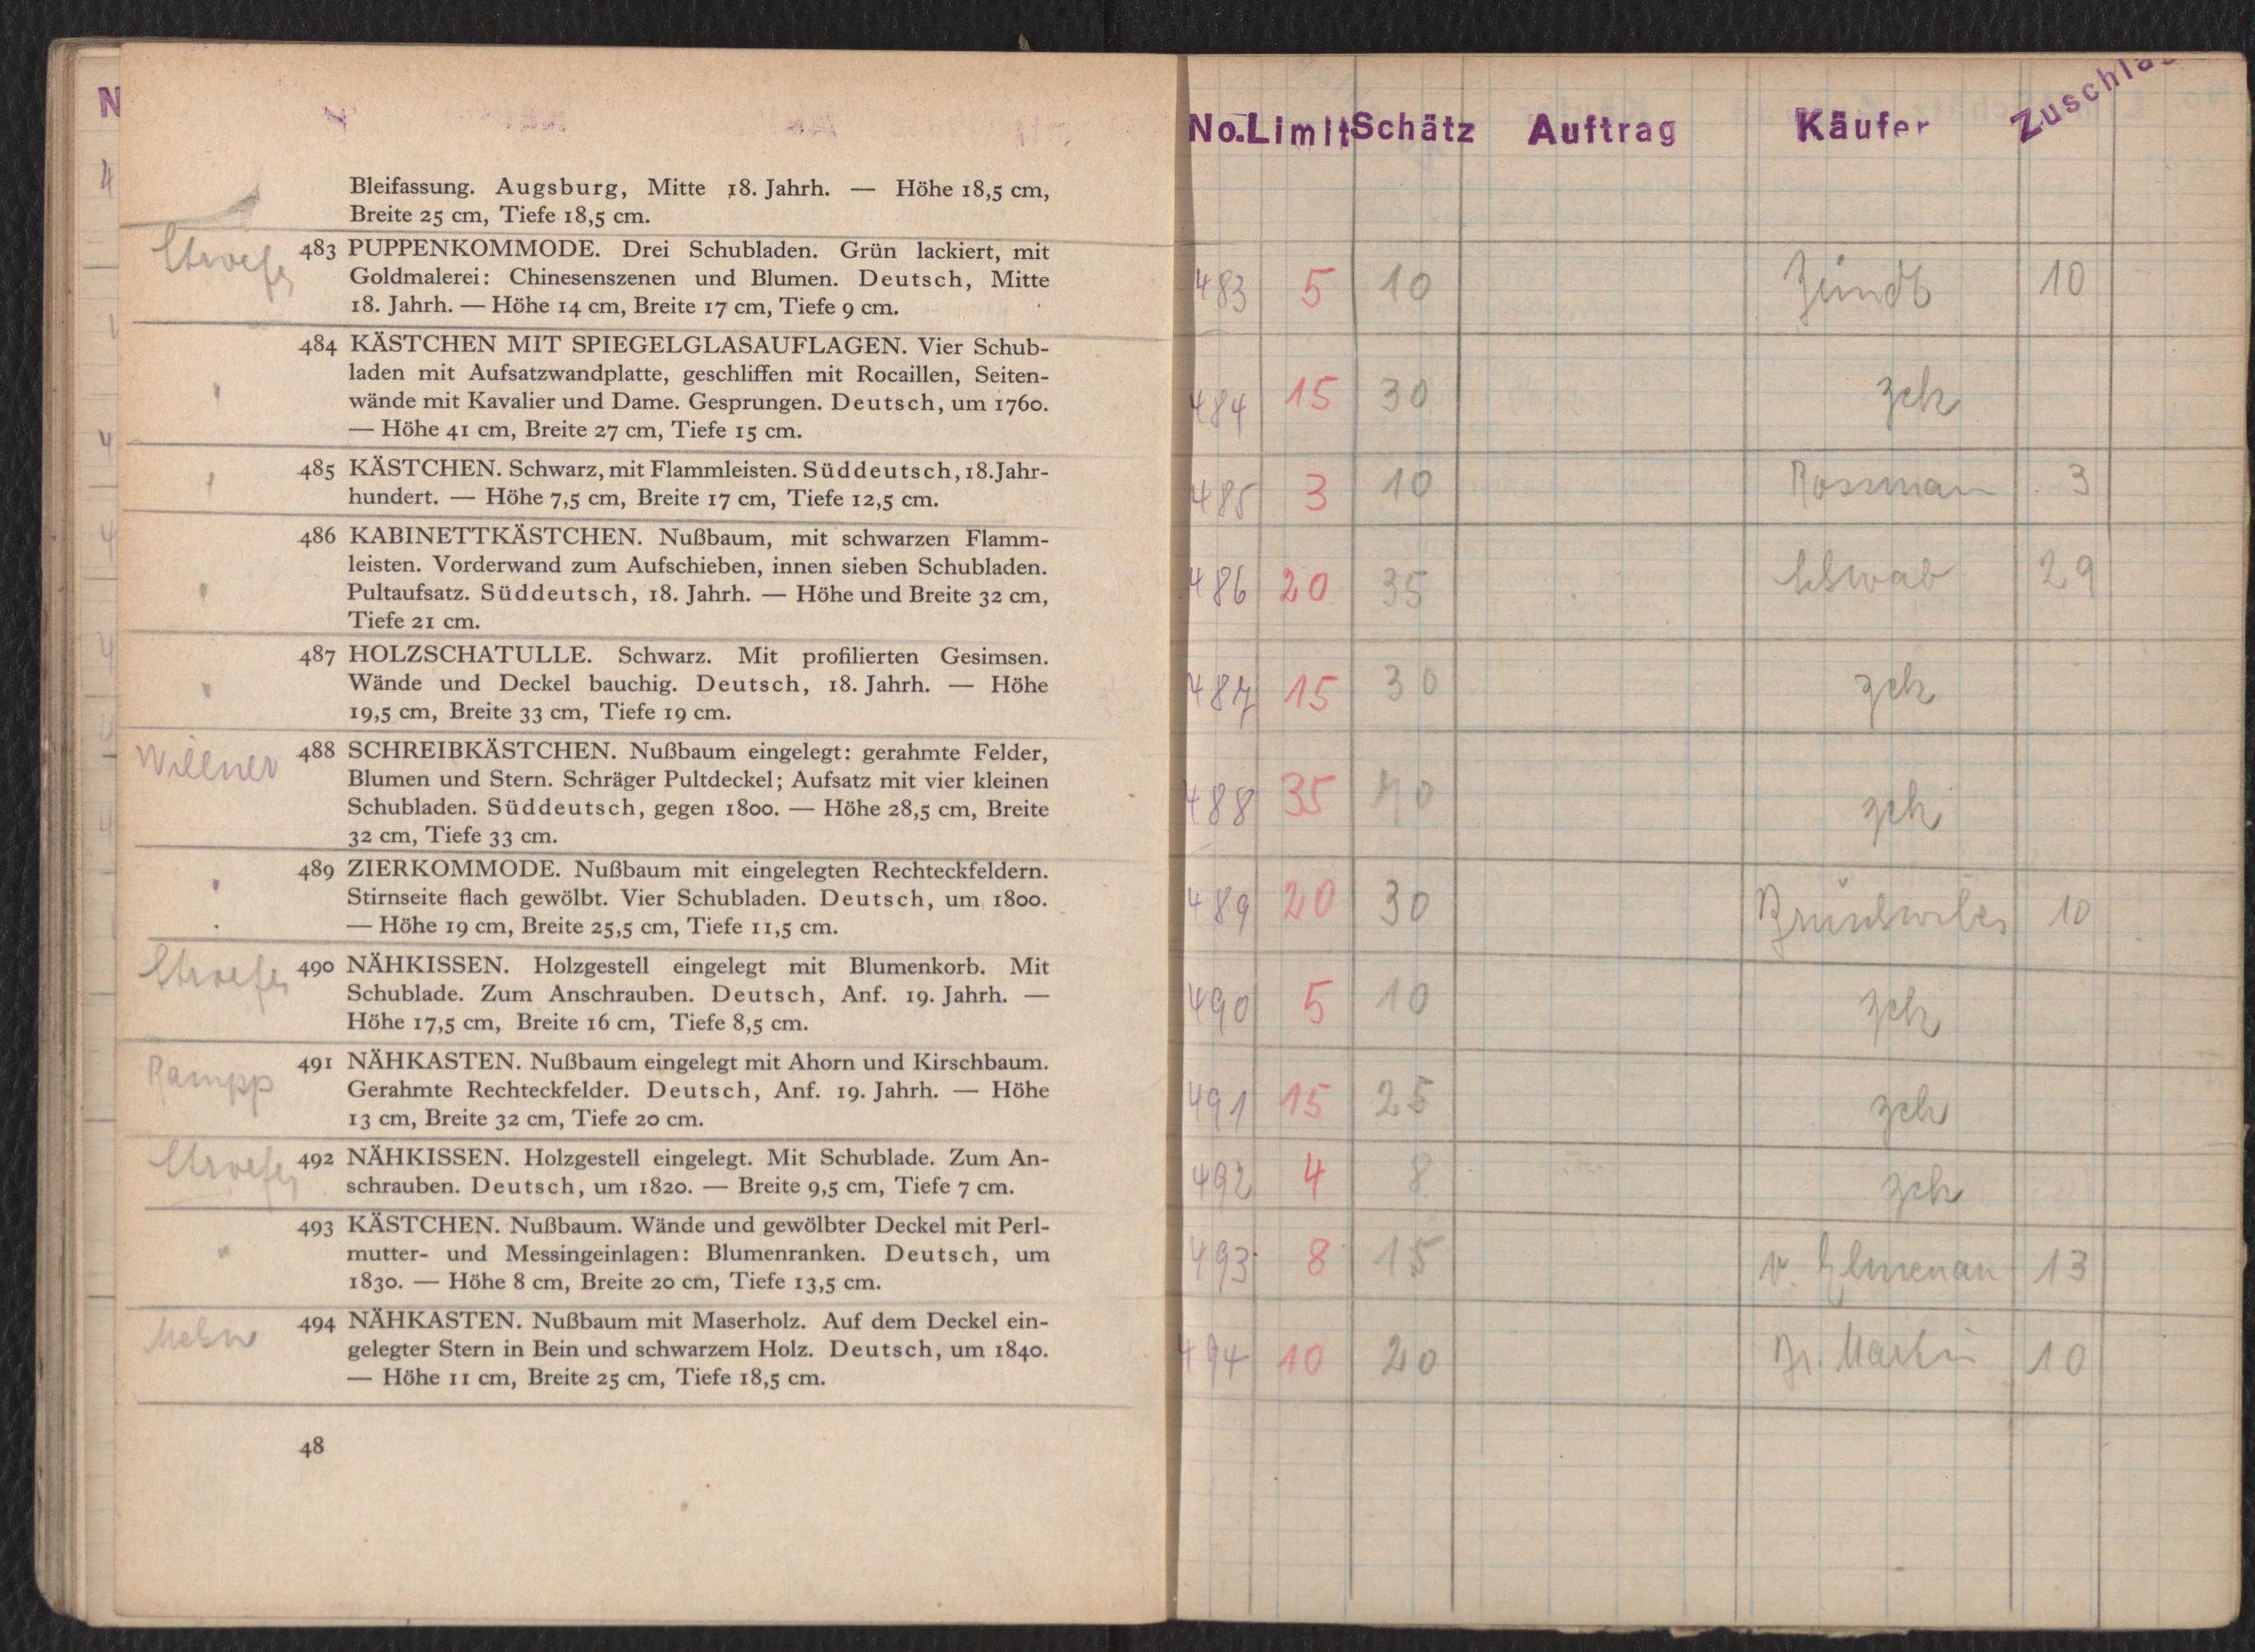 Bleifassung. Augsburg, Mitte 18. Jahrh. — Höhe 18,5 cm,
Breite 25 cm, Tiefe 18,5 cm.
483 PUPPENKOMMODE. Drei Schubladen. Grün lackiert, mit
Goldmalerei: Chinesenszenen und Blumen. Deutsch, Mitte
18. Jahrh. — Höhe 14 cm, Breite 17 cm, Tiefe 9 cm.
484 KÄSTCHEN MIT SPIEGELGLASAUFLAGEN. Vier Schub-
laden mit Aufsatzwandplatte, geschliffen mit Rocaillen, Seiten-
wände mit Kavalier und Dame. Gesprungen. Deutsch, um 1760.
— Höhe 41 cm, Breite 27 cm, Tiefe 15 cm.
485 KÄSTCHEN. Schwarz, mit Flammleisten. Süddeutsch, 18. Jahr-
hundert. — Höhe 7,5 cm, Breite 17 cm, Tiefe 12,5 cm.
486 KABINETTKÄSTCHEN. Nußbaum, mit schwarzen Flamm-
leisten. Vorderwand zum Aufschieben, innen sieben Schubladen.
Pultaufsatz. Süddeutsch, 18. Jahrh. — Höhe und Breite 32 cm,
Tiefe 21 cm.
487 HOLZSCHATULLE. Schwarz. Mit profilierten Gesimsen.
Wände und Deckel bauchig. Deutsch, 18. Jahrh. — Höhe
19,5 cm, Breite 33 cm, Tiefe 19 cm.
Willner 488 SCHREIBKÄSTCHEN. Nußbaum eingelegt: gerahmte Felder,
Blumen und Stern. Schräger Pultdeckel; Aufsatz mit vier kleinen
Schubladen. Süddeutsch, gegen 1800. — Höhe 28,5 cm, Breite
32 cm, Tiefe 33 cm.
489 ZIERKOMMODE. Nußbaum mit eingelegten Rechteckfeldern.
Stirnseite flach gewölbt. Vier Schubladen. Deutsch, um 1800.
— Höhe 19 cm, Breite 25,5 cm, Tiefe 11,5 cm.
490 NÄHKISSEN. Holzgestell eingelegt mit Blumenkorb. Mit
Schublade. Zum Anschrauben. Deutsch, Anf. 19. Jahrh. —
Höhe 17,5 cm, Breite 16 cm, Tiefe 8,5 cm.
Rampp 491 NÄHKASTEN. Nußbaum eingelegt mit Ahorn und Kirschbaum.
Gerahmte Rechteckfelder. Deutsch, Anf. 19. Jahrh. — Höhe
13 cm, Breite 32 cm, Tiefe 20 cm.
492 NÄHKISSEN. Holzgestell eingelegt. Mit Schublade. Zum An-
schrauben. Deutsch, um 1820. — Breite 9,5 cm, Tiefe 7 cm.
493 KÄSTCHEN. Nußbaum. Wände und gewölbter Deckel mit Perl-
mutter- und Messingeinlagen: Blumenranken. Deutsch, um
1830. — Höhe 8 cm, Breite 20 cm, Tiefe 13,5 cm.
494 NÄHKASTEN. Nußbaum mit Maserholz. Auf dem Deckel ein-
gelegter Stern in Bein und schwarzem Holz. Deutsch, um 1840.
— Höhe 11 cm, Breite 25 cm, Tiefe 18,5 cm.
48
No. Limit Schätz Auftrag Käufer Zuschlag
483 5 10 Zündt 10
484 15 30 zck
485 3 10 Rossman 3
486 20 35 Schwab 29
487 15 30 zck
488 35 40 zck
489 20 30 10
490 5 10 zck
491 15 25 zck
492 4 8 zck
493 8 15 13
494 10 20 Dr. Martin 10